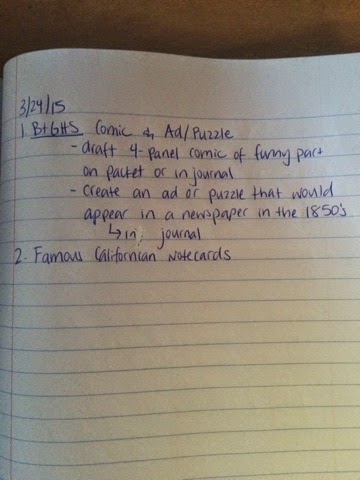 3/24/15
1. B+GHS Comic & Ad/Puzzle
- draft 4-panel comic of funny part
on packet or in journal
- create an ad or puzzle that would
appear in a newspaper in the 1850's
↳ in journal
2. Famous Californian Notecards